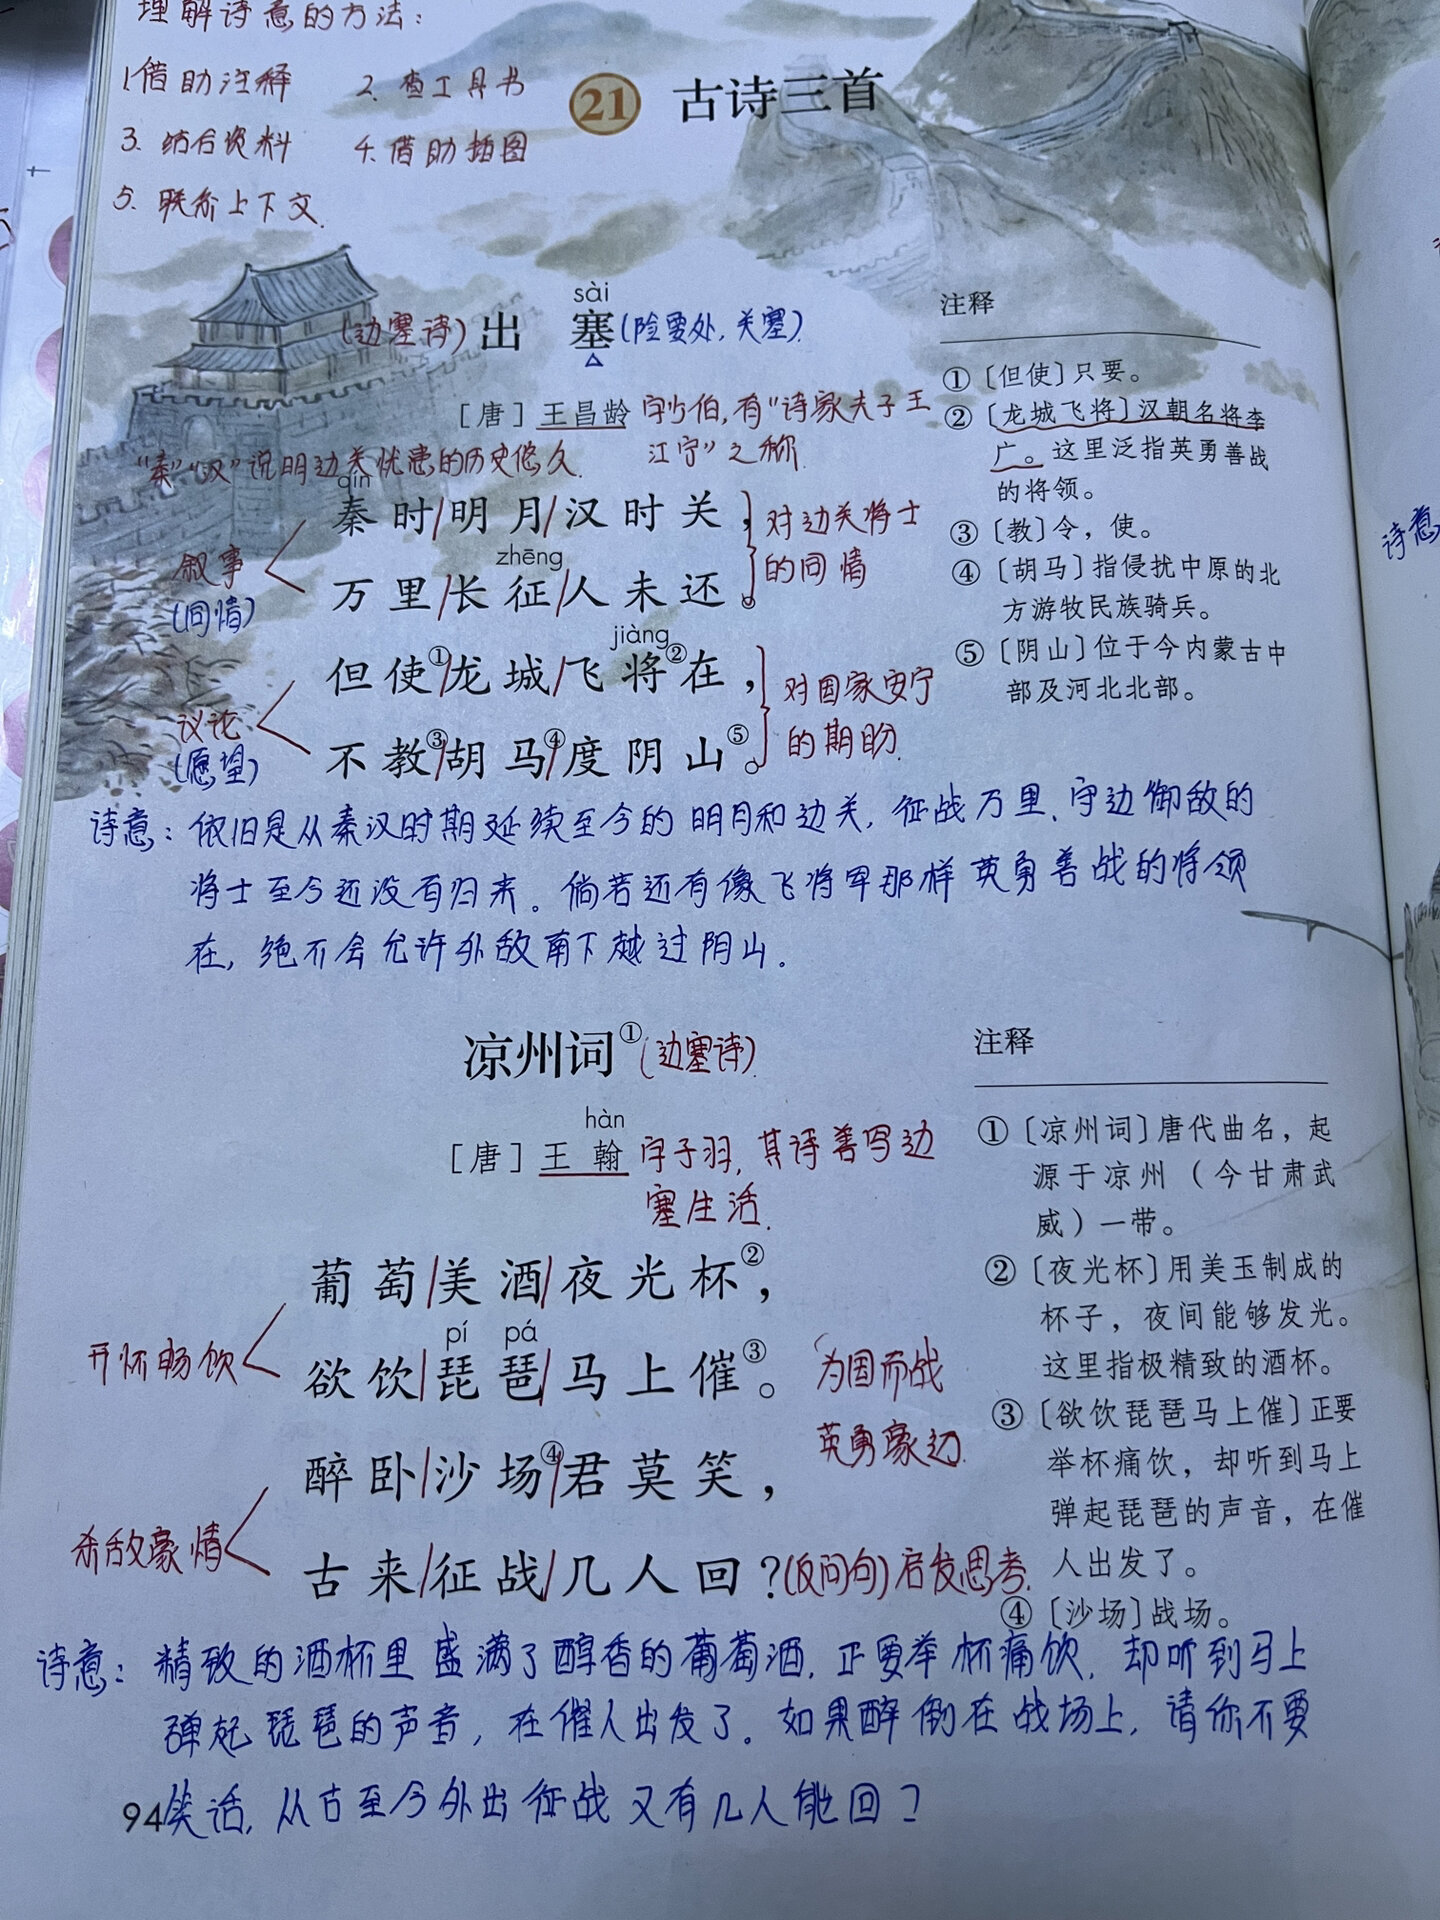 理解诗意的方法：
1.借助注释 2.查工具书
3.结合资料 4.借助插图
5.联系上下文.
21 古诗三首
sài
(边塞诗) 出 塞 (险要处,关塞).
[唐] 王昌龄 字少伯,有"诗家夫子王
江宁"之称.
"秦""汉"说明边关忧患的历史悠久.
qín
秦时/明月/汉时关，
zhēng
万里/长征/人未还。
对边关将士
的同情
叙事
(同情)
jiàng
但使①/龙城/飞将②在，
不教③/胡马④/度阴山⑤。
对国家安宁
的期盼.
议论
(愿望)
注释
①〔但使〕只要。
②〔龙城飞将〕汉朝名将李
广。这里泛指英勇善战
的将领。
③〔教〕令，使。
④〔胡马〕指侵扰中原的北
方游牧民族骑兵。
⑤〔阴山〕位于今内蒙古中
部及河北北部。
诗意：依旧是从秦汉时期延续至今的明月和边关,征战万里、守边御敌的
将士至今还没有归来。倘若还有像飞将军那样英勇善战的将领
在,绝不会允许外敌南下越过阴山.
凉州词① (边塞诗).
hàn
[唐] 王翰 字子羽,其诗善写边
塞生活.
葡萄/美酒/夜光杯②，
pí pá
欲饮/琵琶/马上催③。
开怀畅饮
为国而战
英勇豪迈.
醉卧/沙场④/君莫笑，
古来/征战/几人回？(反问句)启发思考.
杀敌豪情
注释
①〔凉州词〕唐代曲名，起
源于凉州（今甘肃武
威）一带。
②〔夜光杯〕用美玉制成的
杯子，夜间能够发光。
这里指极精致的酒杯。
③〔欲饮琵琶马上催〕正要
举杯痛饮，却听到马上
弹起琵琶的声音，在催
人出发了。
④〔沙场〕战场。
诗意：精致的酒杯里盛满了醇香的葡萄酒,正要举杯痛饮,却听到马上
弹起琵琶的声音,在催人出发了。如果醉倒在战场上,请你不要
笑话,从古至今外出征战又有几人能回？
94
诗意